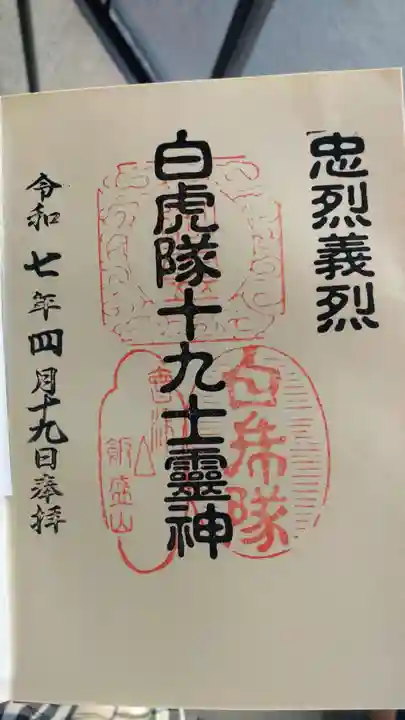 忠烈義烈
白虎隊十九士靈神
白虎隊
会津
飯盛山
令和七年四月十九日奉拝